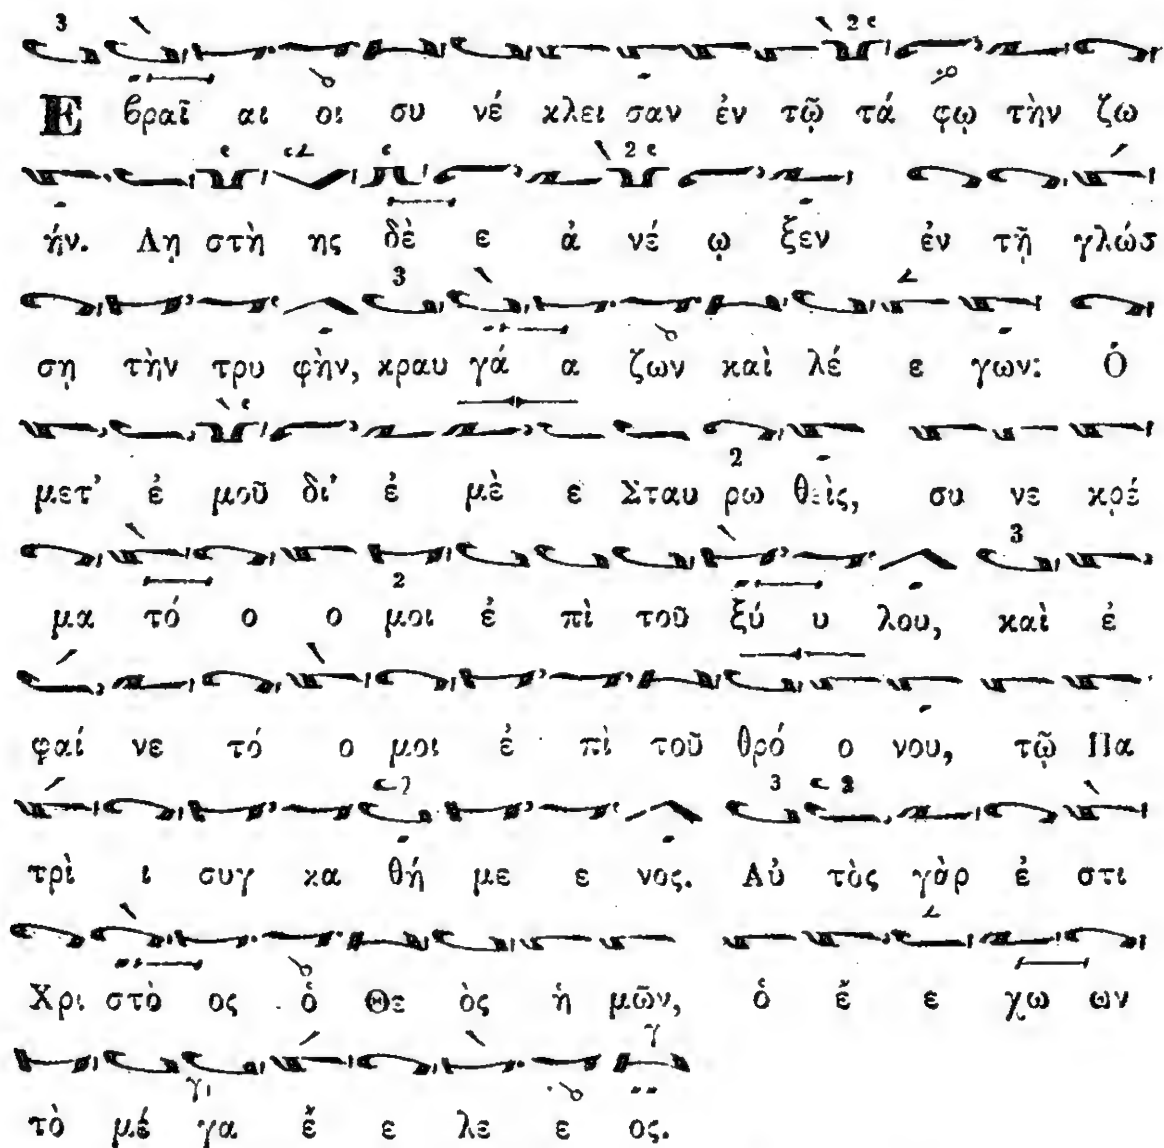 Ε βραῖ αι οι συ νέ κλει σαν ἐν τῷ τά φῳ τὴν ζω
ήν. Λη στὴ ης δὲ ε ἀ νέ ῳ ξεν ἐν τῇ γλώσ
ση τὴν τρυ φὴν, κραυ γά α ζων καὶ λέ ε γων: Ὁ
μετ' ἐ μοῦ δι' ἐ μὲ ε Σταυ ρω θεὶς, συ νε κρέ
μα τό ο ο μοι ἐ πὶ τοῦ ξύ υ λου, καὶ ἐ
φαί νε τό ο μοι ἐ πὶ τοῦ θρό ο νου, τῷ Πα
τρὶ ι συγ κα θή με ε νος. Αὐ τὸς γὰρ ἐ στι
Χρι στὸ ος ὁ Θε ὸς ἡ μῶν, ὁ ἔ ε χω ων
τὸ μέ γα ἔ ε λε ε ος.